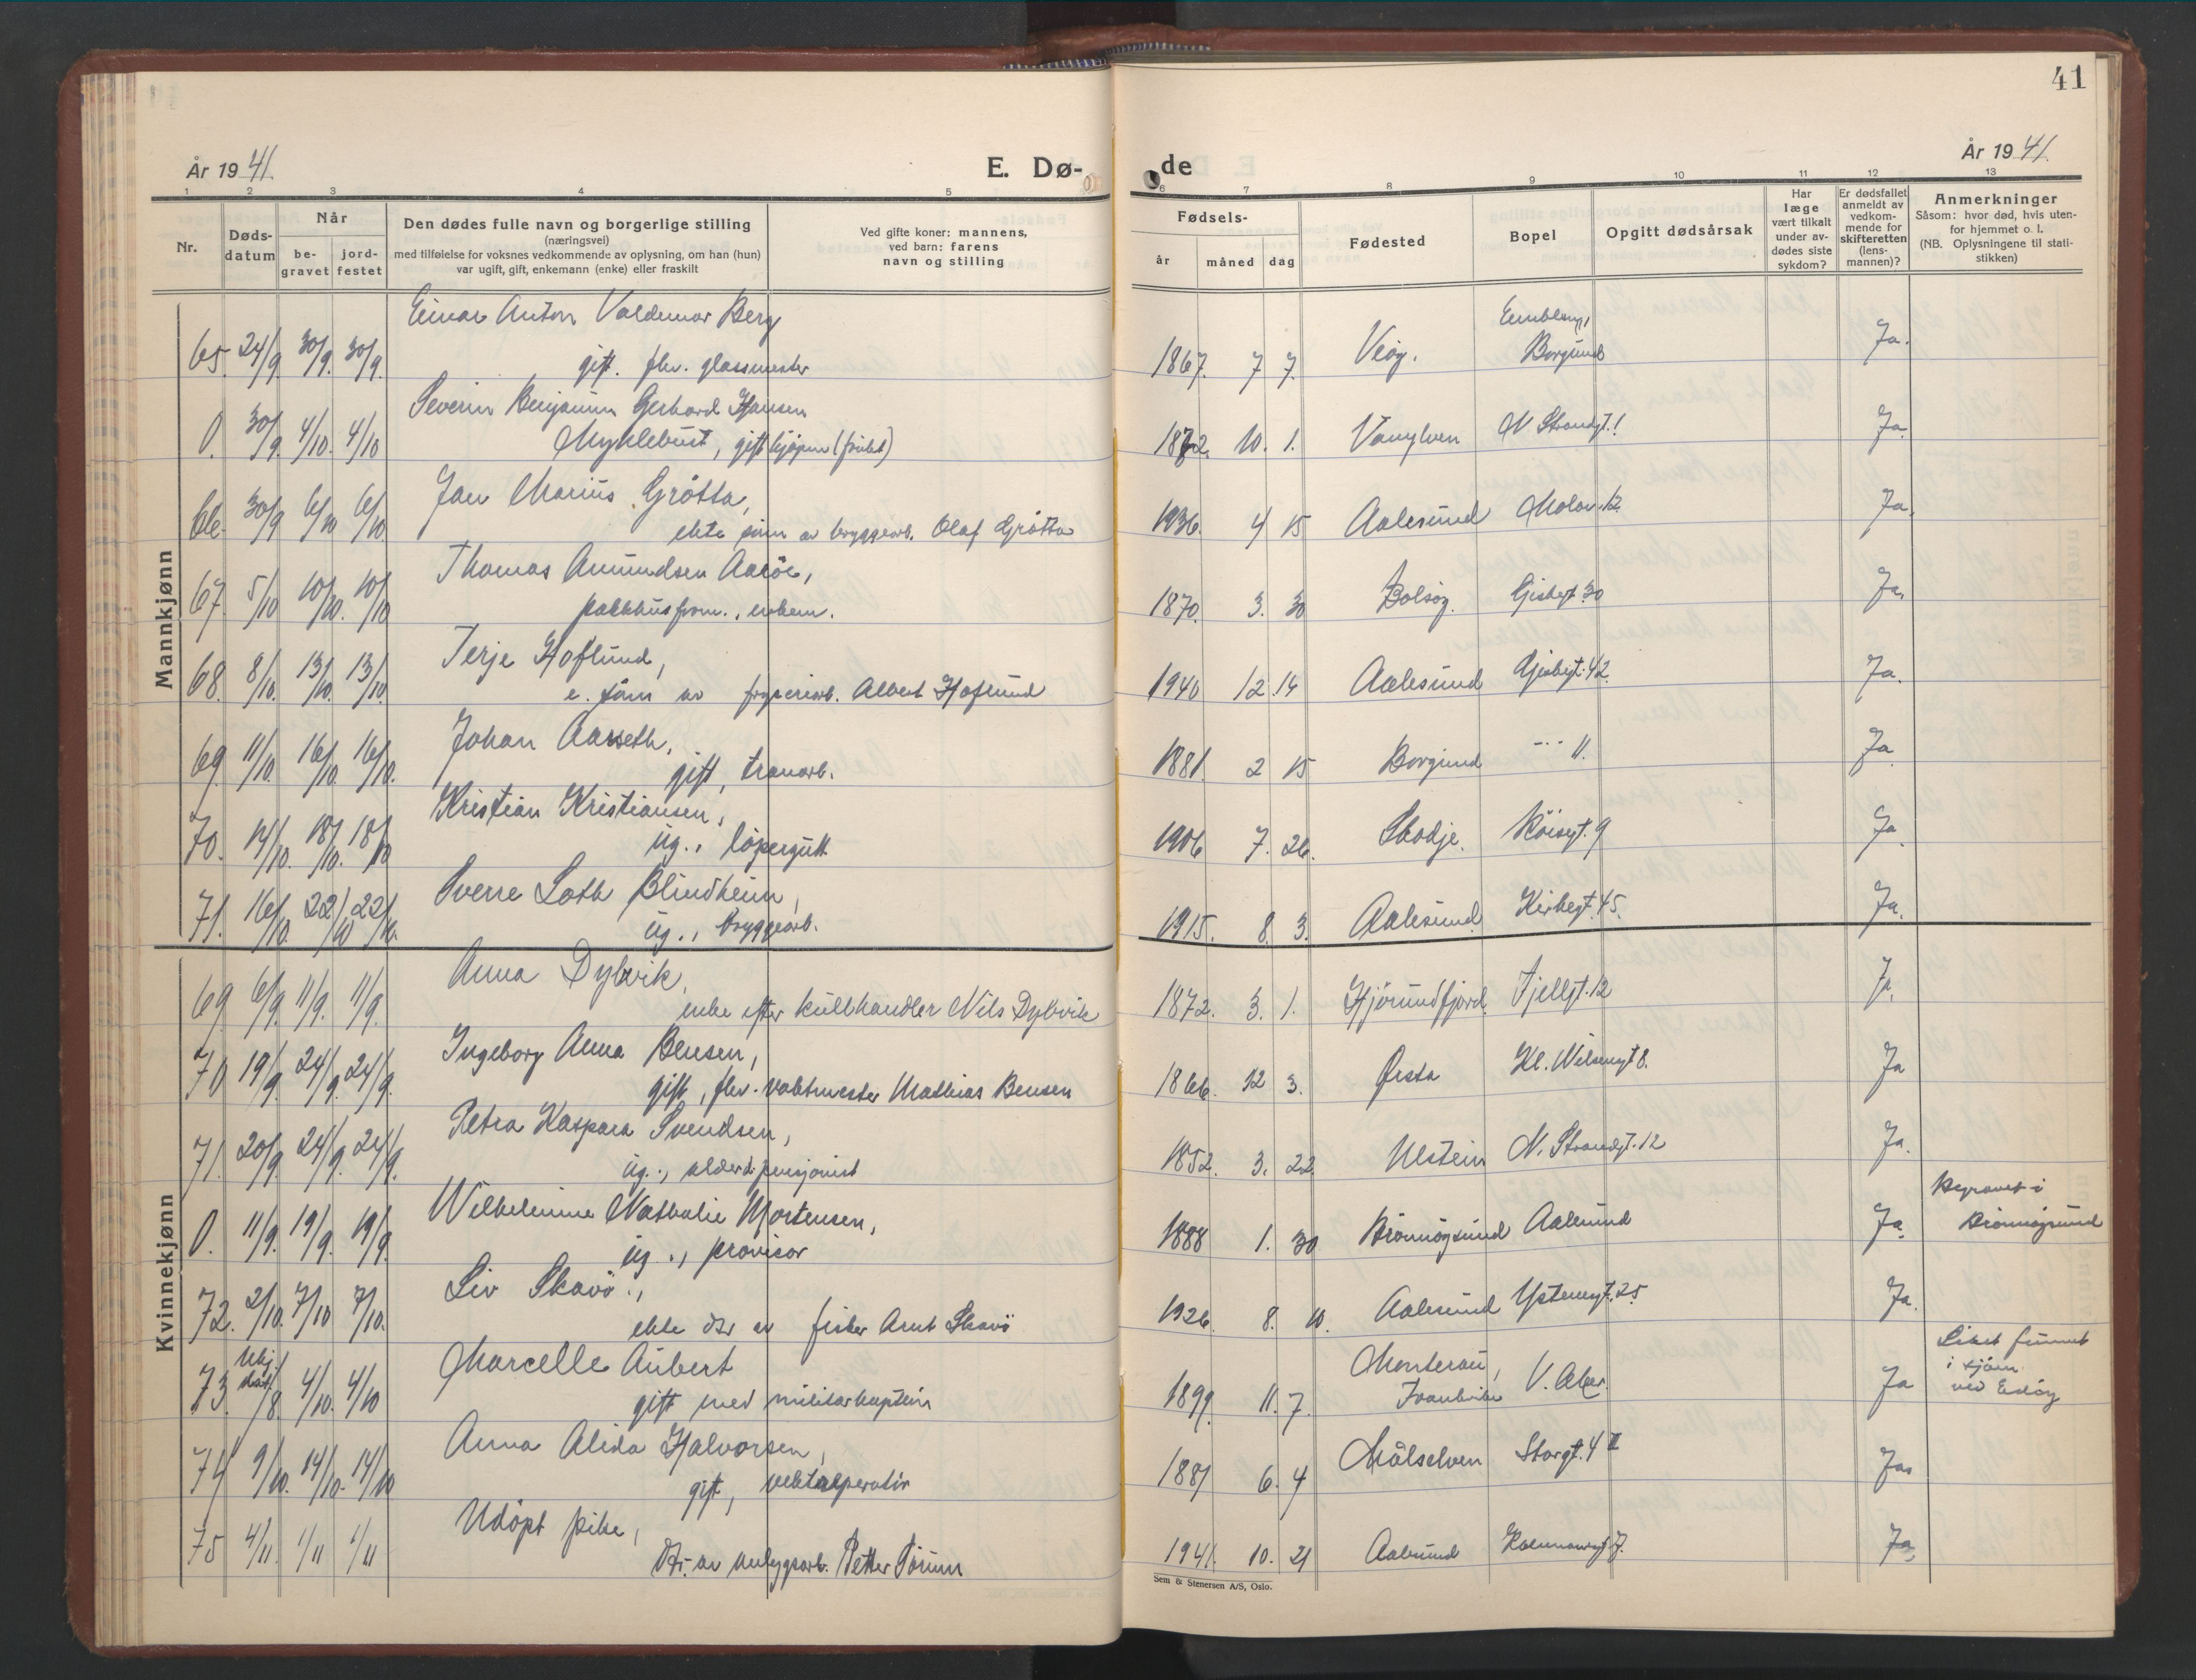 41
År 1941.
E. Dø-
de
År 1941.
1 2 3 4 5 6 7 8 9 10 11 12 13
Nr.
Døds-
datum
Når
be-
gravet
jord-
festet
Den dødes fulle navn og borgerlige stilling
(næringsvei)
med tilføielse for voksnes vedkommende av oplysning, om han (hun)
var ugift, gift, enkemann (enke) eller fraskilt
Ved gifte koner: mannens,
ved barn: farens
navn og stilling
Fødsels-
år måned dag
Fødested
Bopel
Opgitt dødsårsak
Har
læge
vært tilkalt
under av-
dødes siste
sykdom?
Er dødsfallet
anmeldt av
vedkom-
mende for
skifteretten
(lens-
mannen)?
Anmerkninger
Såsom: hvor død, hvis uten-
for hjemmet o. l.
(NB. Oplysningene til stati-
stikken)
Mannkjønn
Einar Anton Valdemar Berg Emblem,
65. 24/9 30/9. 30/9. gift. fhv. glassmester 1867. 7 7. Veøy. Borgund Ja.
Severin Benjamin Gerhard Hansen
0. 30/9. 4/10. 4/10 Myklebust, gift kjøpm (frukt) 1872. 10. 1. Vanylven N Strandgt. 1 Ja.
Jan Marius Grötta,
66. 30/9 6/10 6/10 ekte sønn av bryggearb. Olaf Grötta 1936. 4 15 Aalesund Molov. 12 Ja.
Thomas Amundsen Aaröe,
67. 5/10 10/10. 10/10 pakkhusform., enkem. 1870. 3. 30 Bolsøy. Gisbegt 30 Ja.
Terje Hoflund,
68. 8/10. 13/10. 13/10. e. sönn av fryseriarb. Albert Hoflund 1940 12. 14 Aalesund Gjesbegt. 42. Ja.
Johan Aarseth,
69. 11/10. 16/10. 16/10. gift, tranarb. 1881. 2 15 Borgund --- 11. Ja.
Kristian Kristiansen,
70. 14/10. 18/10. 18/10 ug., löpergutt 1906 7. 26. Skodje. Röisgt. 9 Ja.
Sverre Loth Blindheim,
71. 16/10. 22/10 22/10. ug., bryggearb. 1915. 8. 3. Aalesund Kirkegt. 45. Ja.
Kvinnekjønn
Anna Dybvik,
69. 6/9. 11/9. 11/9. enke efter kullhandler Nils Dybvik 1872. 3. 1. Hjörundfjord. Fjellgt. 12 Ja.
Ingeborg Anna Bensen,
70 19/9. 24/9. 24/9. gift, fhv. vaktmester Mathias Bensen 1866. 12 3. Ørsta Kl. Nilsengt 8. Ja
Petra Kaspara Svendsen,
71. 20/9. 24/9. 24/9. ug., alderd. pensjonist 1852. 3. 22. Ulstein N. Strandgt. 12 Ja.
Wilhelmine Nathalie Mortensen, Begravet i
0. 11/9. 19/9. 19/9. ug., provisor 1888 1. 30 Brönnöysund Aalesund Ja. Brönnöysund
Liv Skavö,
72. 2/10. 7/10 7/10. ekte dtr av fisker Arnt Skavö 1926. 8. 10. Aalesund Ystenesgt. 25. Ja.
Ukj. Marcelle Aubert Monterau, Liket funnet
73. dat. /8. 4/10. 4/10 gift med militærkaptein 1899. 11. 7. Frankrike V. Aker. Ja i sjöen
ved Edöy
Anna Alida Halvorsen,
74 9/10. 14/10. 14/10 gift, 1881 6. 4 Målselven Storgt. 4 II Ja.
Udöpt pike,
75 4/11. 1/11 1/11 dtr. av anlygsarb. Petter Sörum 1941. 10. 21 Aalesund 7. Ja.
Sem & Stenersen A/S, Oslo.